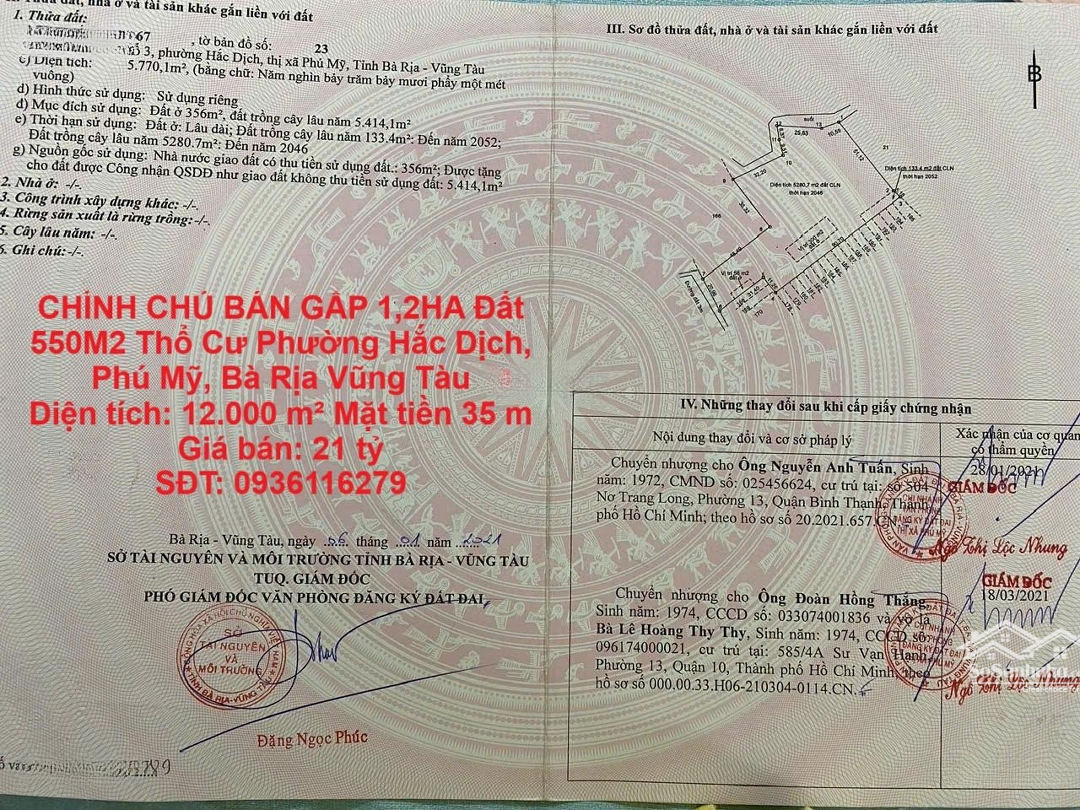 1. Thửa đất:
67
, tờ bản đồ số:
23
3, phường Hắc Dịch, thị xã Phú Mỹ, Tỉnh Bà Rịa - Vũng Tàu
c) Diện tích: 5.770,1m², (bằng chữ: Năm nghìn bảy trăm bảy mươi phẩy một mét
vuông)
d) Hình thức sử dụng: Sử dụng riêng
đ) Mục đích sử dụng: Đất ở 356m², đất trồng cây lâu năm 5.414,1m²
e) Thời hạn sử dụng: Đất ở: Lâu dài; Đất trồng cây lâu năm 133.4m²: Đến năm 2052;
Đất trồng cây lâu năm 5280.7m²: Đến năm 2046
g) Nguồn gốc sử dụng: Nhà nước giao đất có thu tiền sử dụng đất.: 356m²; Được tặng
cho đất được Công nhận QSDĐ như giao đất không thu tiền sử dụng đất: 5.414,1m²
2. Nhà ở: -/-.
3. Công trình xây dựng khác: -/-.
4. Rừng sản xuất là rừng trồng: -/-.
5. Cây lâu năm: -/-.
6. Ghi chú: -/-.
CHÍNH CHỦ BÁN GẤP 1,2HA Đất
550M2 Thổ Cư Phường Hắc Dịch,
Phú Mỹ, Bà Rịa Vũng Tàu
Diện tích: 12.000 m² Mặt tiền 35 m
Giá bán: 21 tỷ
SĐT: 0936116279
Bà Rịa - Vũng Tàu, ngày 06 tháng 01 năm 2021
SỞ TÀI NGUYÊN VÀ MÔI TRƯỜNG TỈNH BÀ RỊA - VŨNG TÀU
TUQ. GIÁM ĐỐC
PHÓ GIÁM ĐỐC VĂN PHÒNG ĐĂNG KÝ ĐẤT ĐAI
SỞ
TÀI NGUYÊN
VÀ
MÔI TRƯỜNG
Đặng Ngọc Phúc
III. Sơ đồ thửa đất, nhà ở và tài sản khác gắn liền với đất
B
suối
25,63
10,59
61,12
21
Diện tích 133,4 m2 đất CLN
thời hạn 2052
32,20
Diện tích 5280,7 m2 đất CLN
thời hạn 2046
166
IV. Những thay đổi sau khi cấp giấy chứng nhận
Nội dung thay đổi và cơ sở pháp lý
Xác nhận của cơ quan
có thẩm quyền
Chuyển nhượng cho Ông Nguyễn Anh Tuấn, Sinh
năm: 1972, CMND số: 025456624, cư trú tại: số 304
Nơ Trang Long, Phường 13, Quận Bình Thạnh, Thành
phố Hồ Chí Minh; theo hồ sơ số 20.2021.657.CN
28/01/2021
GIÁM ĐỐC
Ngô Thị Lộc Nhung
Chuyển nhượng cho Ông Đoàn Hồng Thắng,
Sinh năm: 1974, CCCD số: 033074001836 và vợ là
Bà Lê Hoàng Thy Thy, Sinh năm: 1974, CCCD số:
096174000021, cư trú tại: 585/4A Sư Vạn Hạnh,
Phường 13, Quận 10, Thành phố Hồ Chí Minh, theo
hồ sơ số 000.00.33.H06-210304-0114.CN.
GIÁM ĐỐC
18/03/2021
Ngô Thị Lộc Nhung